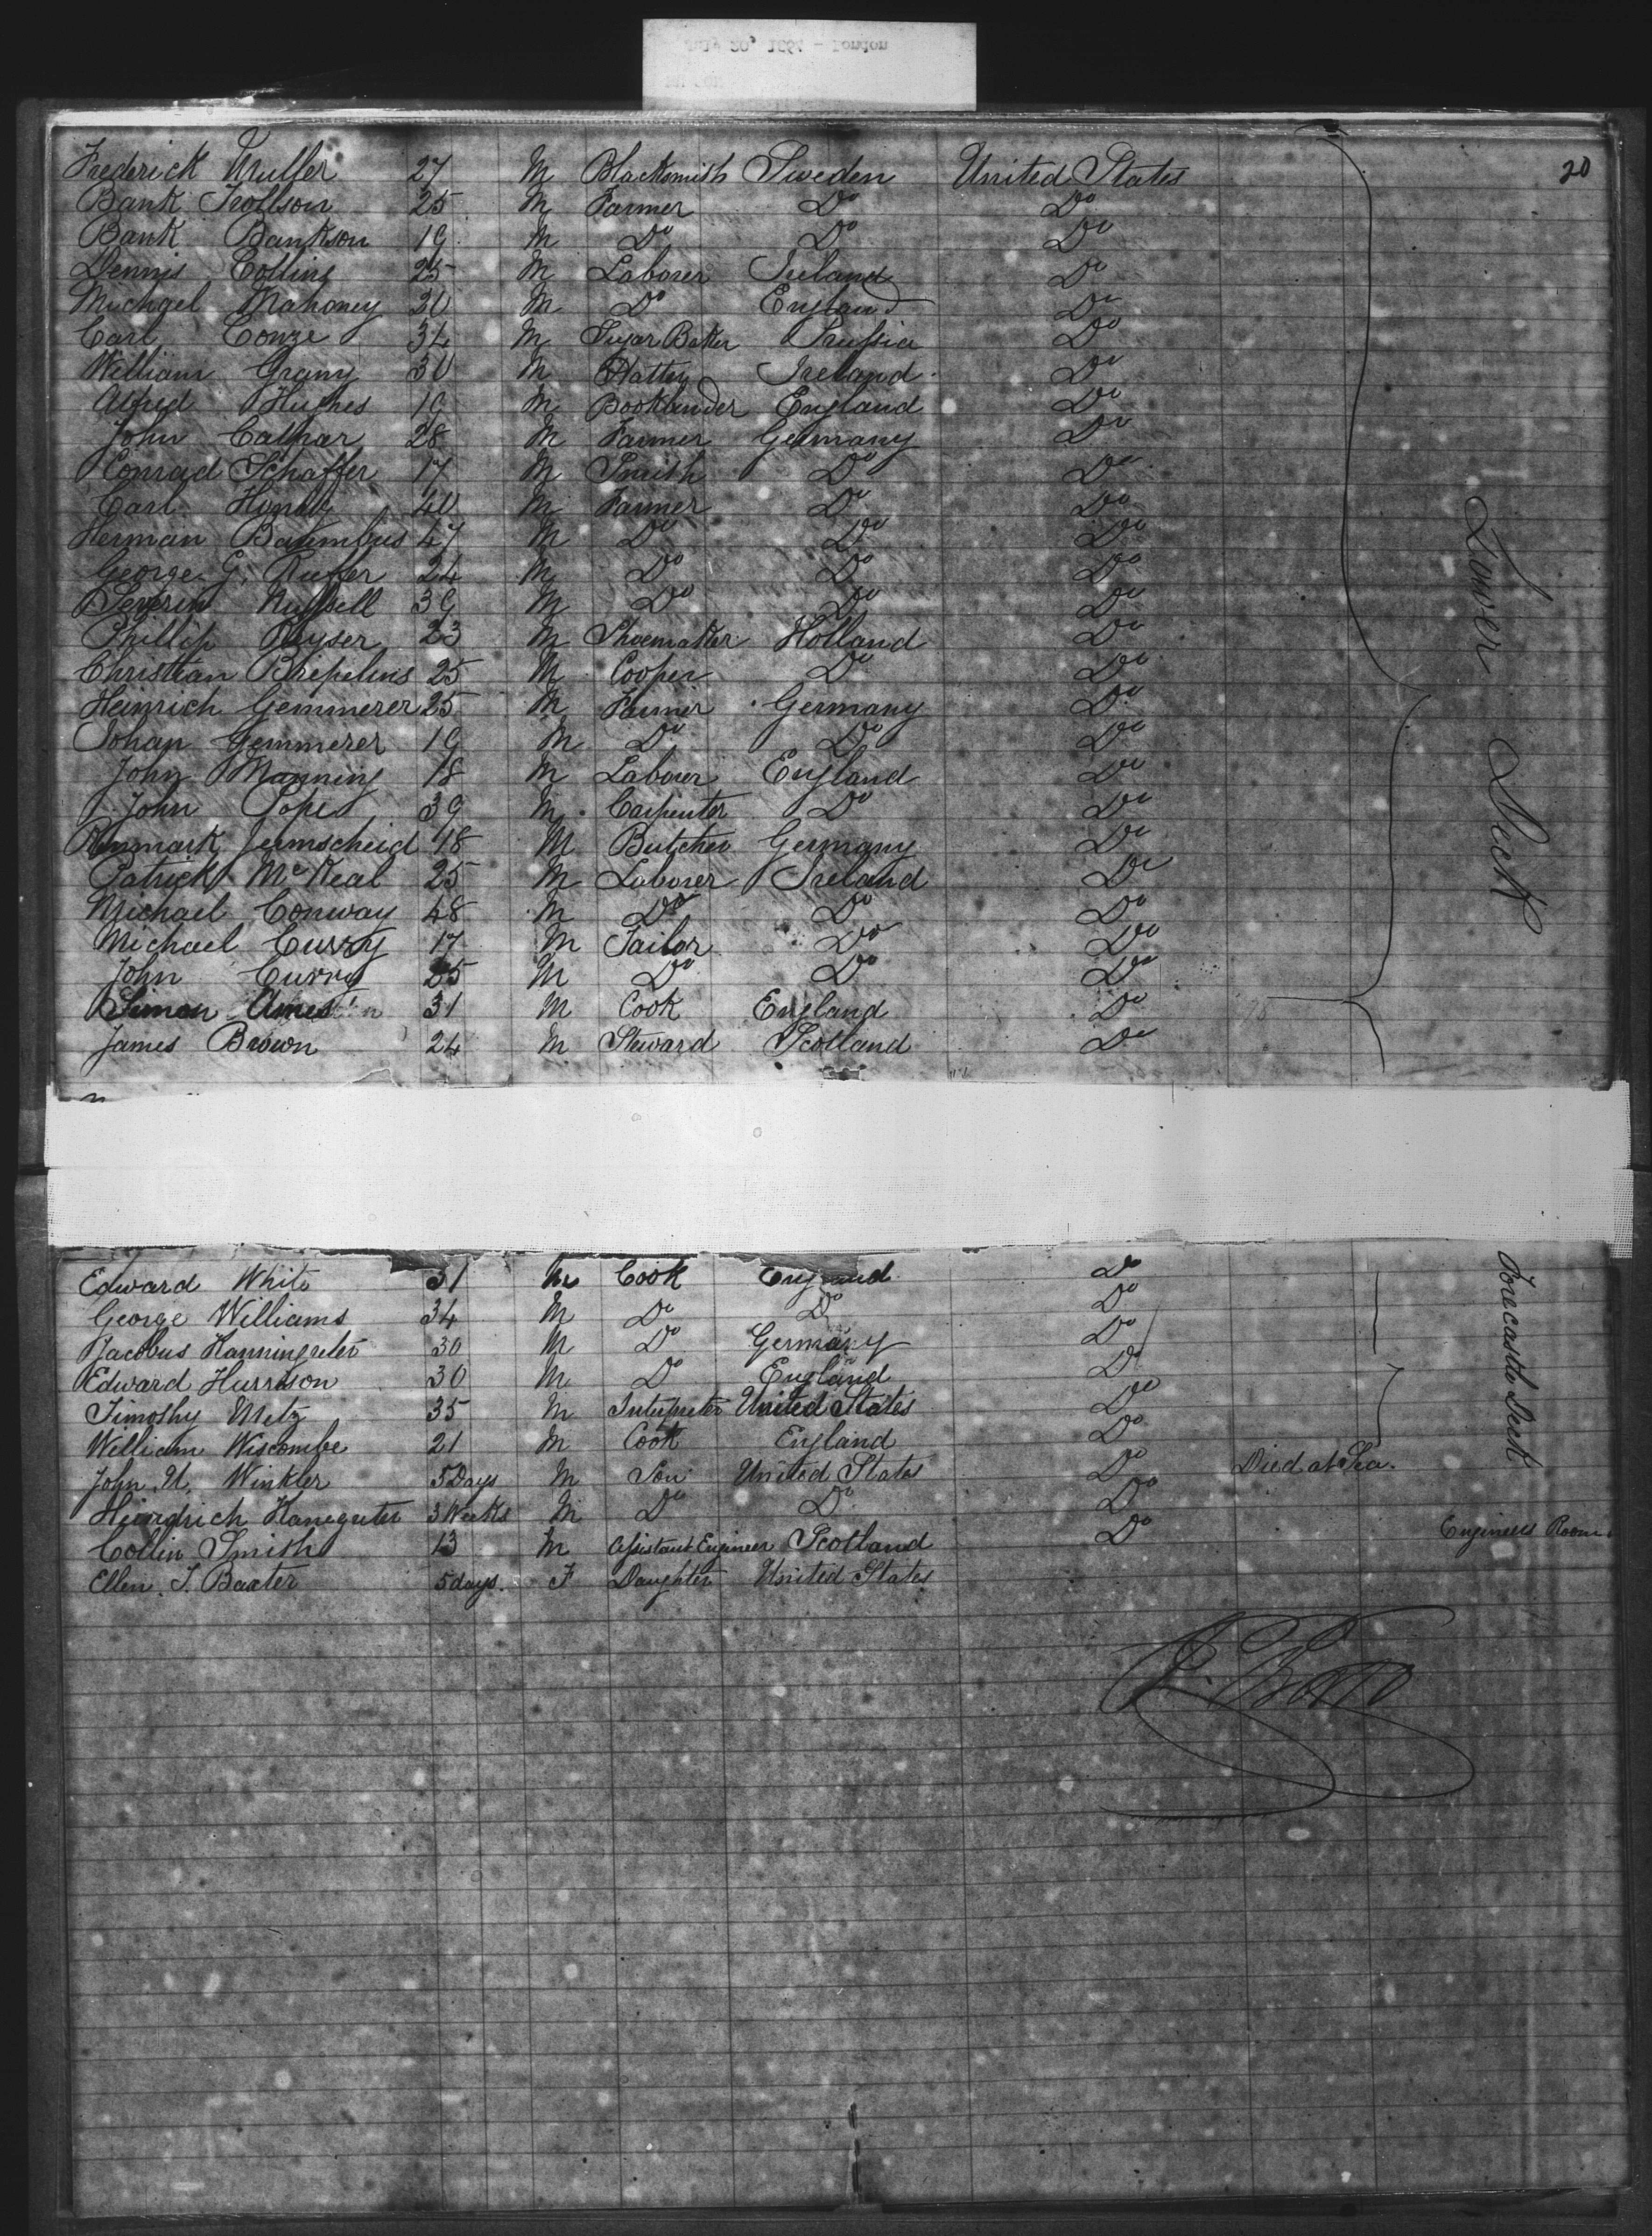 July 20, 1864 - London
20
Frederick Muller 27 M Blacksmith Sweden United States
Bank Trollson 25 M Farmer Do Do
Bank Bankson 19 M Do Do Do
Dennis Collins 25 M Laborer Ireland Do
Michael Mahoney 30 M Do England Do
Carl Conze 34 M Sugar Baker Prussia Do
William Grany 30 M Hatter Ireland Do
Alfred Hughes 19 M Bookbinder England Do
John Caspar 28 M Farmer Germany Do
Conrad Schaffer 17 M Smith Do Do
Carl 40 M Farmer Do Do
Herman 47 M Do Do Do
George G. Ruffer 24 M Do Do Do
Severin 39 M Do Do Do
Phillip Keyser 23 M Shoemaker Holland Do
Christian 25 M Cooper Do Do
Heinrich Gemmerer 25 M Farmer Germany Do
Johan Gemmerer 19 M Do Do Do
John Manning 18 M Laborer England Do
John Pope 39 M Carpenter Do Do
Jermscheid 18 M Butcher Germany Do
Patrick McKeal 25 M Laborer Ireland Do
Michael Conway 48 M Do Do Do
Michael Curry 17 M Tailor Do Do
John Curry 25 M Do Do Do
Simon Ames 31 M Cook England Do
James Brown 24 M Steward Scotland Do
Lower Deck
Edward White 31 M Cook England Do
George Williams 34 M Do Do Do
Jacobus Kanningeter 30 M Do Germany Do
Edward Hurrison 30 M Do England Do
Timothy Metz 35 M Interpreter United States Do
William Wiscombe 21 M Cook England Do
John U. Winkler 5 Days M Son United States Do Died at Sea.
Heindrich Kanegeter 3 Weeks M Do Do Do
Collin Smith 13 M Assistant Engineer Scotland Do Engineers Room
Ellen T. Baxter 5 days. F Daughter United States
Forecastle Deck